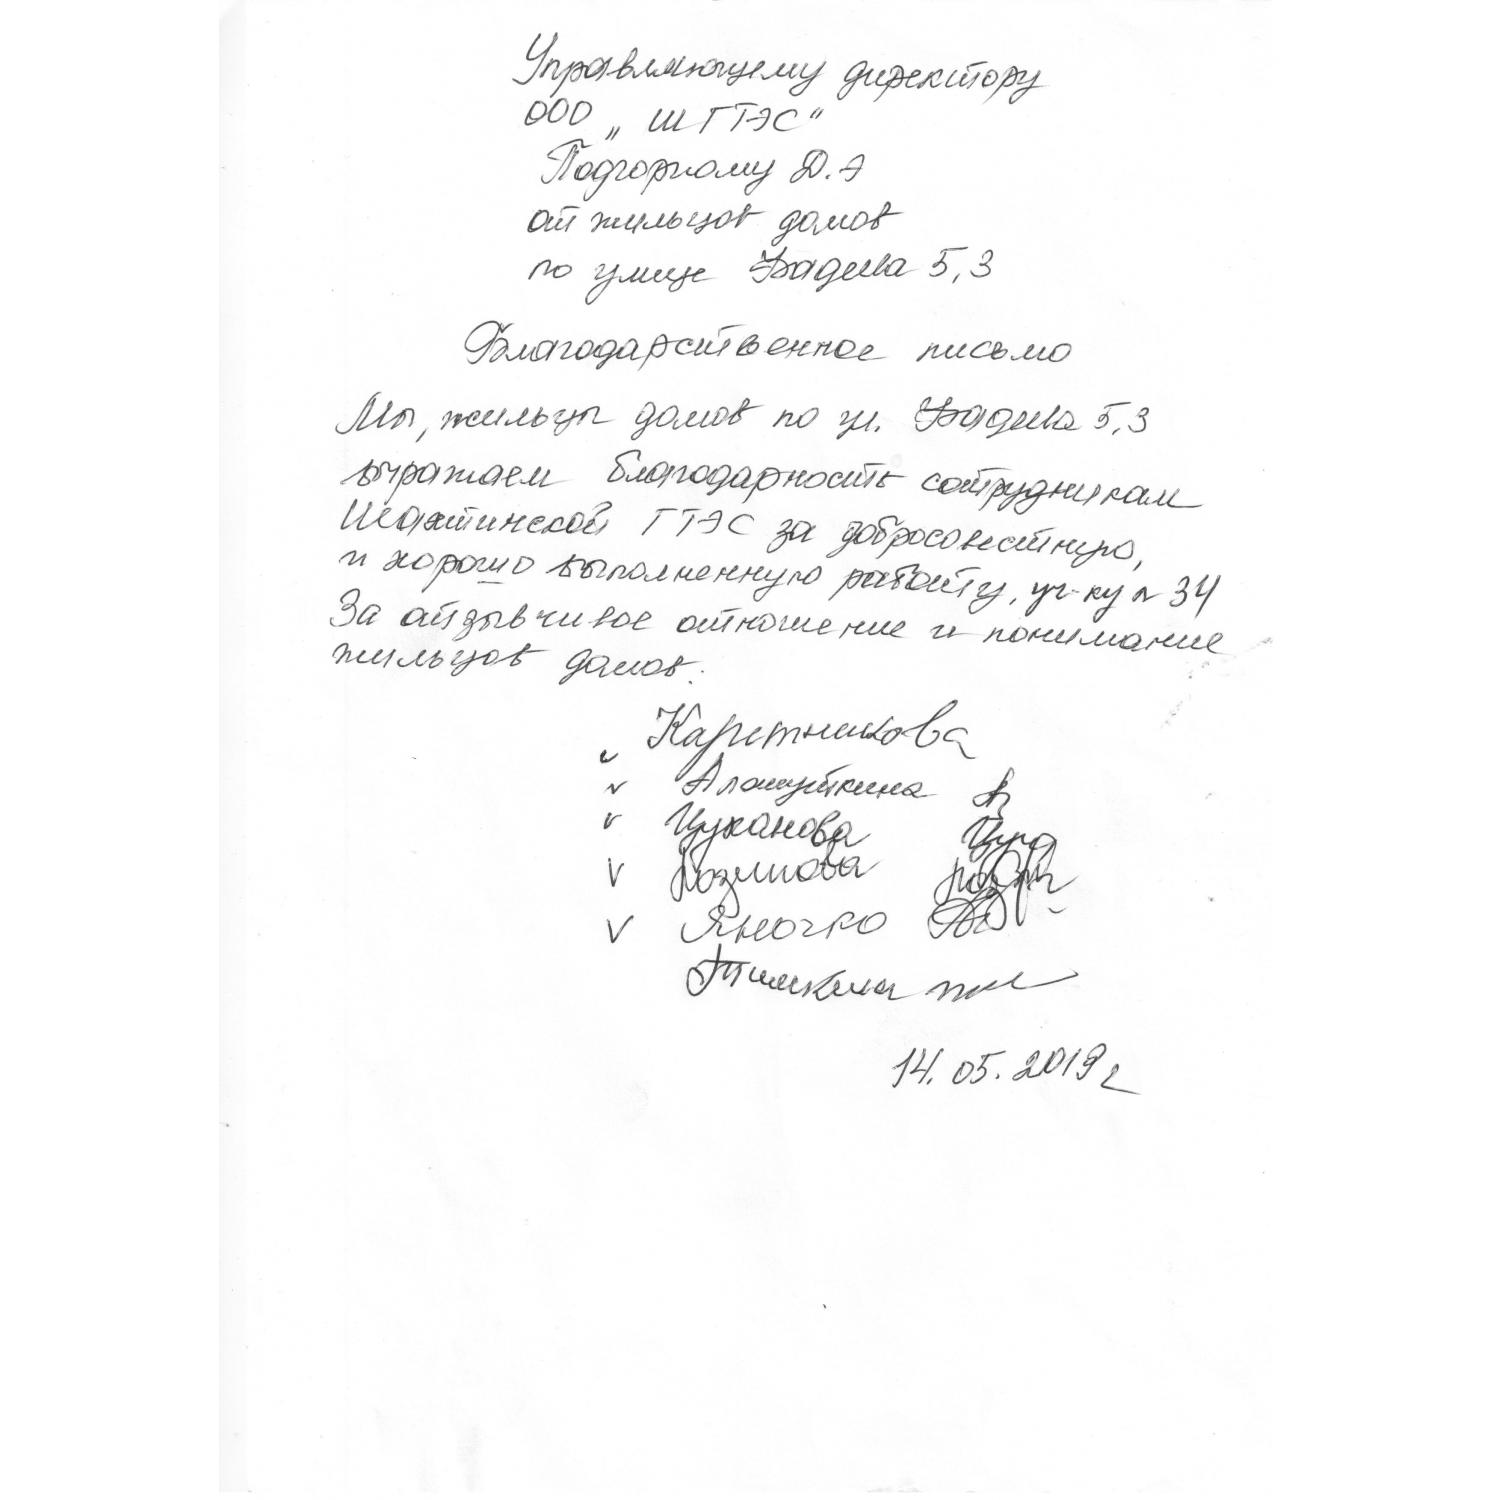 Управляющему директору
ООО „ШГТЭС"
Подгорному Д.А
от жильцов домов
по улице 5,3
Благодарственное письмо
Мы, жильцы домов по ул. 5,3
выражаем благодарность сотрудникам
Шахтинской ГТЭС за добросовестную,
и хорошо выполненную работу, уч-ку n 34
За отзывчивое отношение и понимание
жильцов домов.
Каретникова
v Алашуткина
v Цуканова
v
v Яночко
Тимкина
14.05.2019г